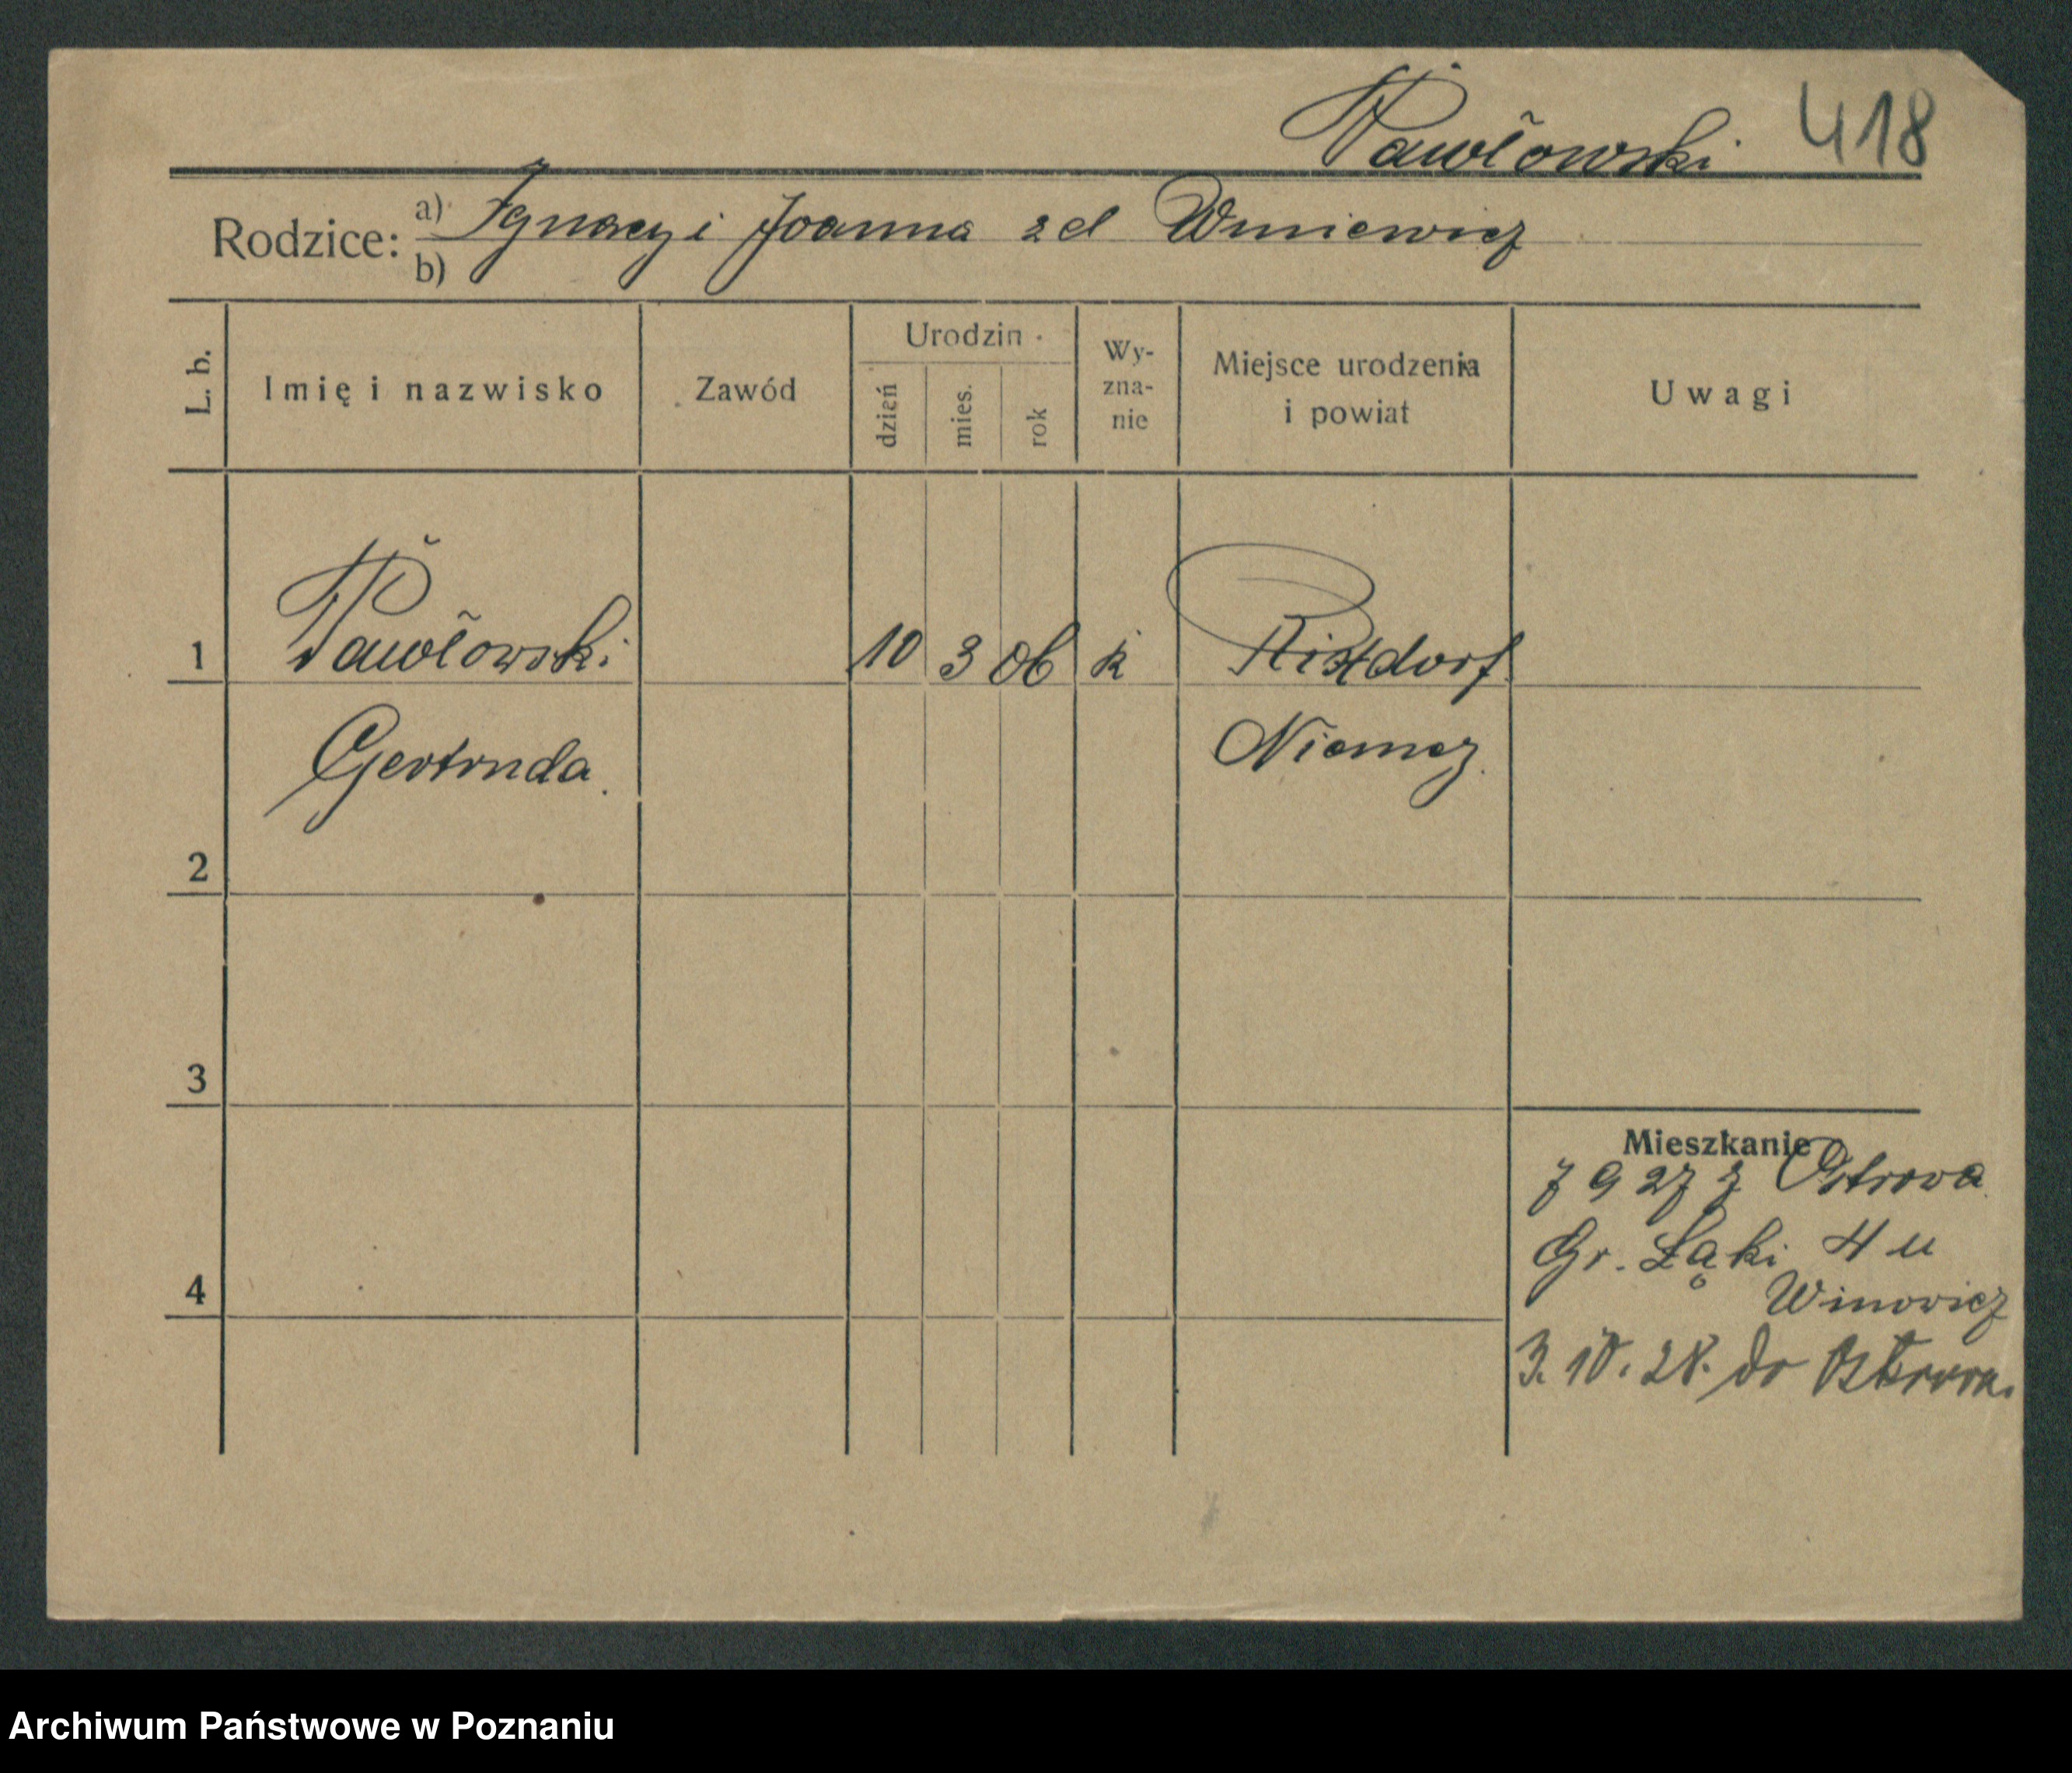 Pawłowski 418
Rodzice: a) Ignacy i Joanna zd
b)
L. b.
Imię i nazwisko
Zawód
Urodzin
dzień
mies.
rok
Wy-
zna-
nie
Miejsce urodzenia
i powiat
Uwagi
1 Pawłowski 10 3 06 k
Gertruda Niemcy
2
3
4
Mieszkanie
7 9 27 z Ostrowa
Gr. Łąki 4 u
Winowicz
3. 10. 28. do Ostrowa.
Archiwum Państwowe w Poznaniu